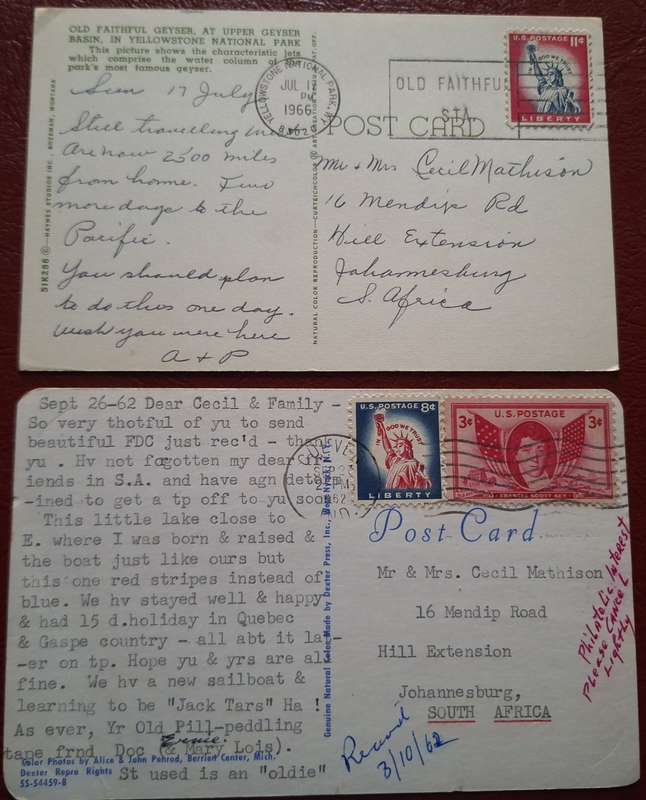 OLD FAITHFUL GEYSER, AT UPPER GEYSER
BASIN, IN YELLOWSTONE NATIONAL PARK
This picture shows the characteristic jets
which comprise the water column of
park's most famous geyser.
Sun 17 July
Still travelling
Are now 2500 miles
from home. Two
more days to the
Pacific.
You should plan
to do this one day.
Wish you were here
A + P
51K256 © — HAYNES STUDIOS INC., BOZEMAN, MONTANA
NATURAL COLOR REPRODUCTION — CURTEICHCOLOR ® ART CREATION
YELLOWSTONE NATIONAL PARK, W
JUL 17
PM
1966
OLD FAITHFU
STA
U.S. POSTAGE 11¢
IN GOD WE TRUST
LIBERTY
POST CARD
Mr + Mrs Cecil Mathison
16 Mendip Rd
Hill Extension
Johannesburg
S. Africa
Sept 26-62 Dear Cecil & Family -
So very thotful of yu to send
beautiful FDC just rec'd - than
yu . Hv not fogotten my dear fr
iends in S.A. and have agn determ
-ined to get a tp off to yu soo
This little lake close to
E. where I was born & raised &
the boat just like ours but
this one red stripes instead of
blue. We hv stayed well & happy
& had 15 d.holiday in Quebec
& Gaspe country - all abt it lat-
-er on tp. Hope yu & yrs are all
fine. We hv a new sailboat &
learning to be "Jack Tars" Ha !
As ever, Yr Old Pill-peddling
Ernie
tape frnd Doc (& Mary Lois).
St used is an "oldie"
Color Photos by Alice & John Penrod, Berrien Center, Mich.
Dexter Repro Rights
SS-54459-B
Genuine Natural Color Made by Dexter Press, Inc., West Nyack, N.Y.
U.S. POSTAGE 8¢
IN GOD WE TRUST
LIBERTY
3¢ U.S. POSTAGE 3¢
FRANCIS SCOTT KEY
Post Card
Mr & Mrs. Cecil Mathison
16 Mendip Road
Hill Extension
Johannesburg,
SOUTH AFRICA
Philatelic Interest
Please Cancel
Lightly
Recvd
3/10/62